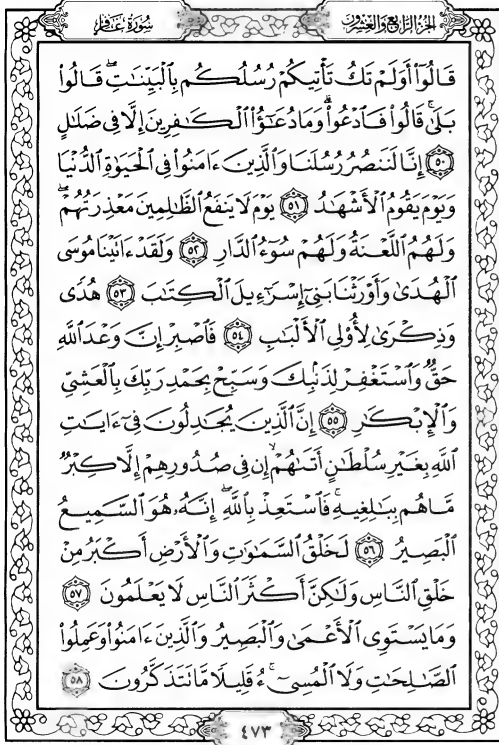 سُورَةُ غَافِرٍ الجُزْءُ الرَّابِعُ وَالعِشْرُونَ
قَالُوٓا۟ أَوَلَمْ تَكُ تَأْتِيكُمْ رُسُلُكُم بِٱلْبَيِّنَٰتِ ۖ قَالُوا۟
بَلَىٰ ۚ قَالُوا۟ فَٱدْعُوا۟ ۗ وَمَا دُعَٰٓؤُا۟ ٱلْكَٰفِرِينَ إِلَّا فِى ضَلَٰلٍ
٥٠ إِنَّا لَنَنصُرُ رُسُلَنَا وَٱلَّذِينَ ءَامَنُوا۟ فِى ٱلْحَيَوٰةِ ٱلدُّنْيَا
وَيَوْمَ يَقُومُ ٱلْأَشْهَٰدُ ٥١ يَوْمَ لَا يَنفَعُ ٱلظَّٰلِمِينَ مَعْذِرَتُهُمْ ۖ
وَلَهُمُ ٱللَّعْنَةُ وَلَهُمْ سُوٓءُ ٱلدَّارِ ٥٢ وَلَقَدْ ءَاتَيْنَا مُوسَى
ٱلْهُدَىٰ وَأَوْرَثْنَا بَنِىٓ إِسْرَٰٓءِيلَ ٱلْكِتَٰبَ ٥٣ هُدًى
وَذِكْرَىٰ لِأُو۟لِى ٱلْأَلْبَٰبِ ٥٤ فَٱصْبِرْ إِنَّ وَعْدَ ٱللَّهِ
حَقٌّ وَٱسْتَغْفِرْ لِذَنۢبِكَ وَسَبِّحْ بِحَمْدِ رَبِّكَ بِٱلْعَشِىِّ
وَٱلْإِبْكَٰرِ ٥٥ إِنَّ ٱلَّذِينَ يُجَٰدِلُونَ فِىٓ ءَايَٰتِ
ٱللَّهِ بِغَيْرِ سُلْطَٰنٍ أَتَىٰهُمْ ۙ إِن فِى صُدُورِهِمْ إِلَّا كِبْرٌ
مَّا هُم بِبَٰلِغِيهِ ۚ فَٱسْتَعِذْ بِٱللَّهِ ۖ إِنَّهُۥ هُوَ ٱلسَّمِيعُ
ٱلْبَصِيرُ ٥٦ لَخَلْقُ ٱلسَّمَٰوَٰتِ وَٱلْأَرْضِ أَكْبَرُ مِنْ
خَلْقِ ٱلنَّاسِ وَلَٰكِنَّ أَكْثَرَ ٱلنَّاسِ لَا يَعْلَمُونَ ٥٧
وَمَا يَسْتَوِى ٱلْأَعْمَىٰ وَٱلْبَصِيرُ وَٱلَّذِينَ ءَامَنُوا۟ وَعَمِلُوا۟
ٱلصَّٰلِحَٰتِ وَلَا ٱلْمُسِىٓءُ ۚ قَلِيلًا مَّا تَتَذَكَّرُونَ ٥٨
٤٧٣